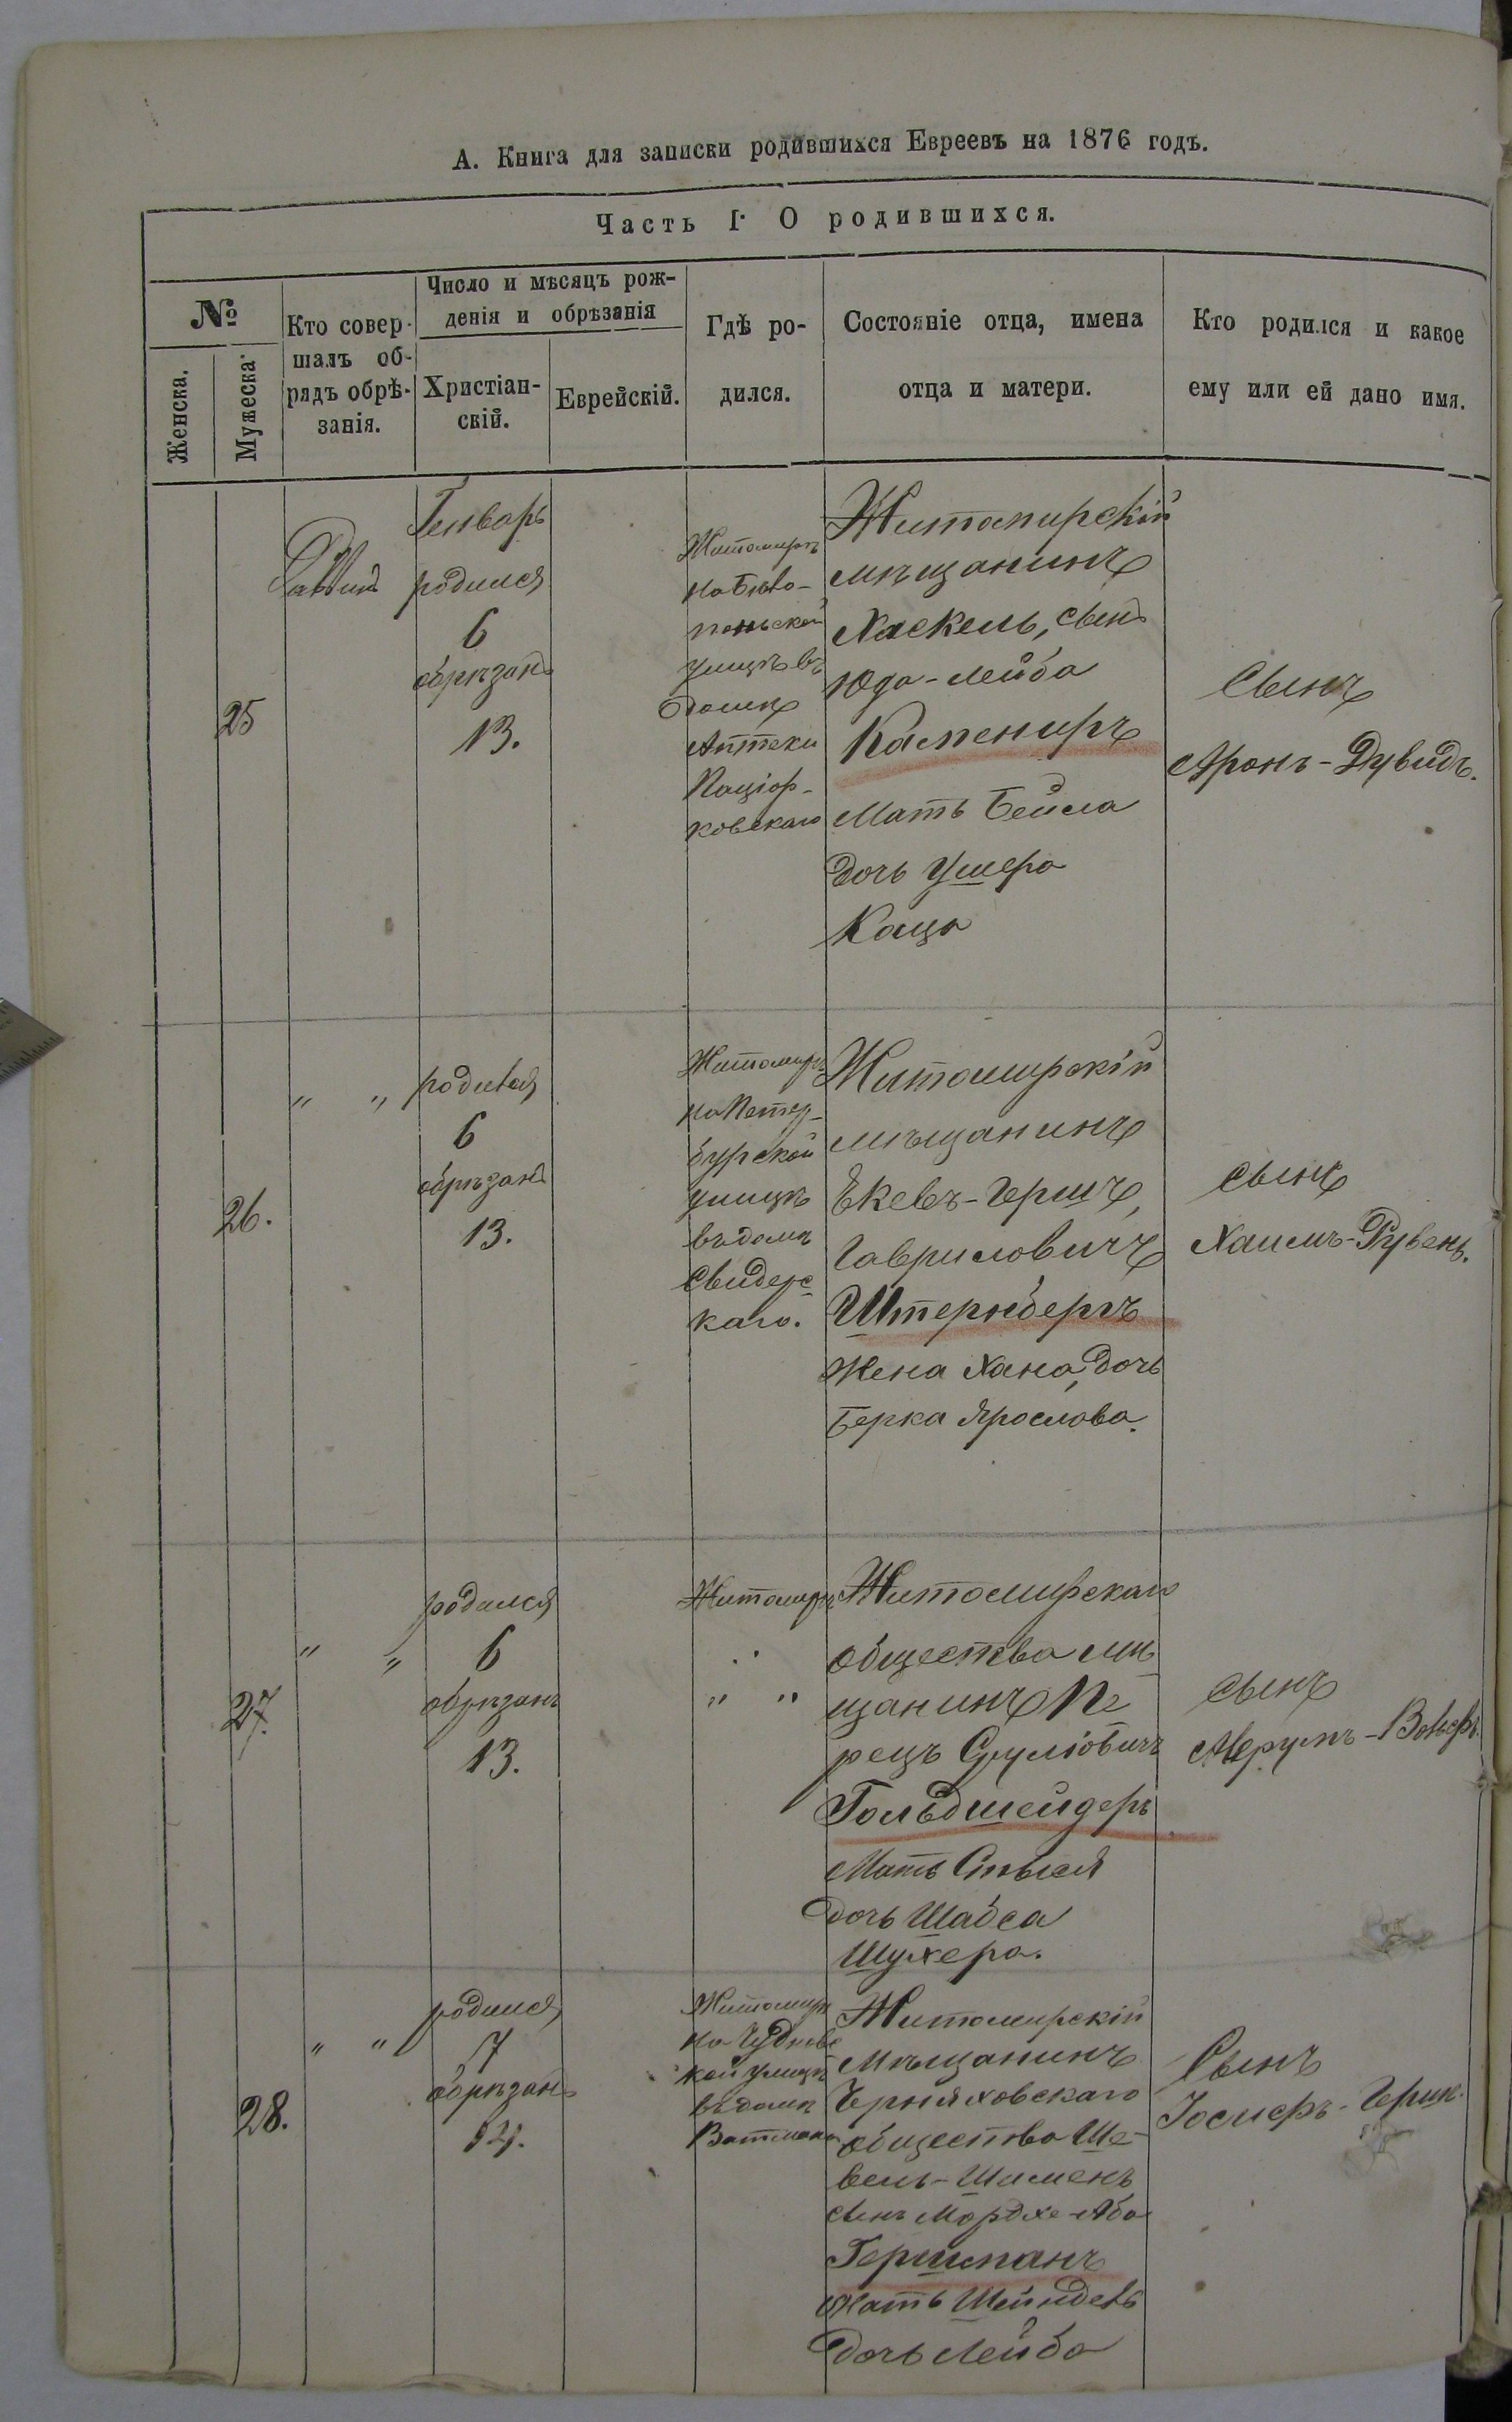 А. Книга для записки родившихся Евреевъ на 1876 годъ.
Часть I. О родившихся.
№
Женска.
Мужеска.
Кто совер-
шалъ об-
рядъ обрѣ-
занія.
Число и мѣсяцъ рож-
денія и обрѣзанія
Христіан-
скій.
Еврейскій.
Гдѣ ро-
дился.
Состояніе отца, имена
отца и матери.
Кто родился и какое
ему или ей дано имя.
25
Генварь
родился
6
обрѣзанъ
13.
Житомиръ
улицѣ въ
домѣ
Аптеки
ковскаго
Житомирскій
мѣщанинъ
Хаскель, сынъ
Юдо-Лейба
Камениръ
Мать Бейла
дочь Ушера
Каца
Сынъ
Аронъ-Дувидъ.
26.
" "
родился
6
обрѣзанъ
13.
Житомиръ
на Петер-
бурской
улицѣ
въ домѣ
Свидерс-
каго.
Житомирскій
мѣщанинъ
Екевъ-Гершъ,
Гавриловичъ
Штернбергъ
Жена Хана, дочь
Берка Ярослава.
сынъ
Хаимъ-Рувенъ.
27.
" "
родился
6
обрѣзанъ
13.
Житомиръ
" "
Житомирскаго
общества мѣ-
щанинъ Пе-
рецъ Сруліовичъ
Гольдшейдеръ
Мать
дочь Шабса
Шухера.
сынъ
Мерумъ-Вольфъ.
28.
" "
родился
7
обрѣзанъ
14.
Житомиръ
на Чуднов-
кой улицѣ
въ домѣ
Житомирскій
Мѣщанинъ
Черняховскаго
общества Ше-
вель-Шименъ
сынъ Мордхе-Аба
Гершманъ
Мать Шейндель
дочь Лейба
Сынъ
Іосифъ-Гершъ.